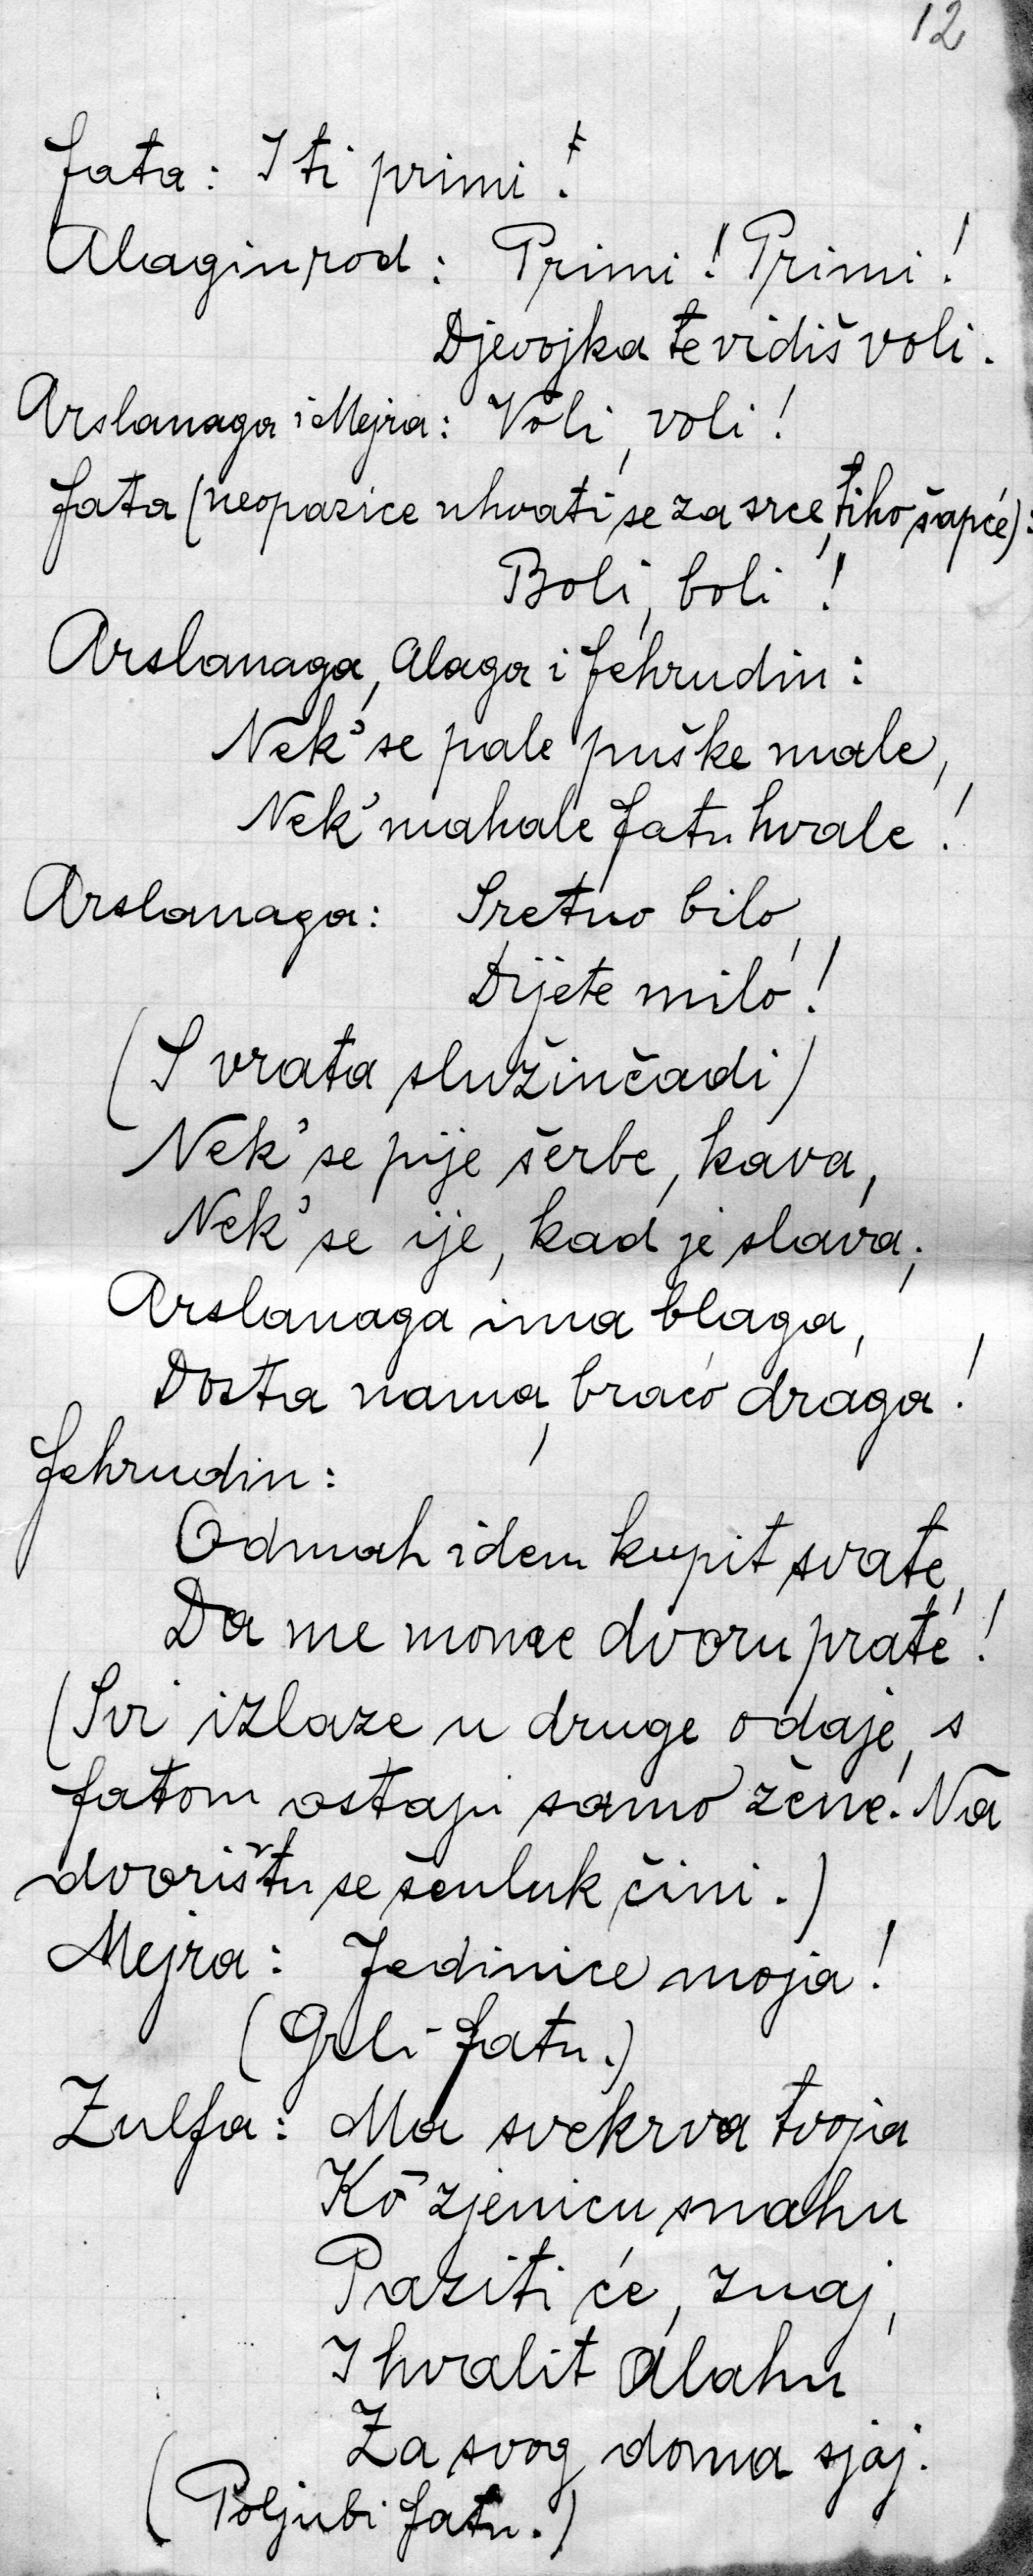 12
Fata: I ti primi!
Alagin rod: Primi! Primi!
Djevojka te vidiš voli.
Arslanaga i Mejra: Voli, voli!
Fata (neopazice uhvati se za srce, tiho šapće):
Boli, boli!
Arslanaga, Alaga i Fehrudin:
Nek' se pale puške male,
Nek' mahale Fatu hvale!
Arslanaga: Sretno bilo,
Dijete milo!
(S vrata služinčadi)
Nek' se pije šerbe, kava,
Nek' se ije, kad je slava;
Arslanaga ima blaga,
Dosta nama, braćo draga!
Fehrudin:
Odmah idem kupit svate,
Da me mome dvoru prate!
(Svi izlaze u druge odaje, s
Fatom ostaju samo žene. Na
dvorištu se šenluk čini.)
Mejra: Jedinice moja!
(Grli Fatu.)
Zulfa: Ma svekrva tvoja
Ko zjenicu snahu
Paziti će, znaj,
I hvalit Alahu
Za svog doma sjaj.
(Poljubi Fatu.)